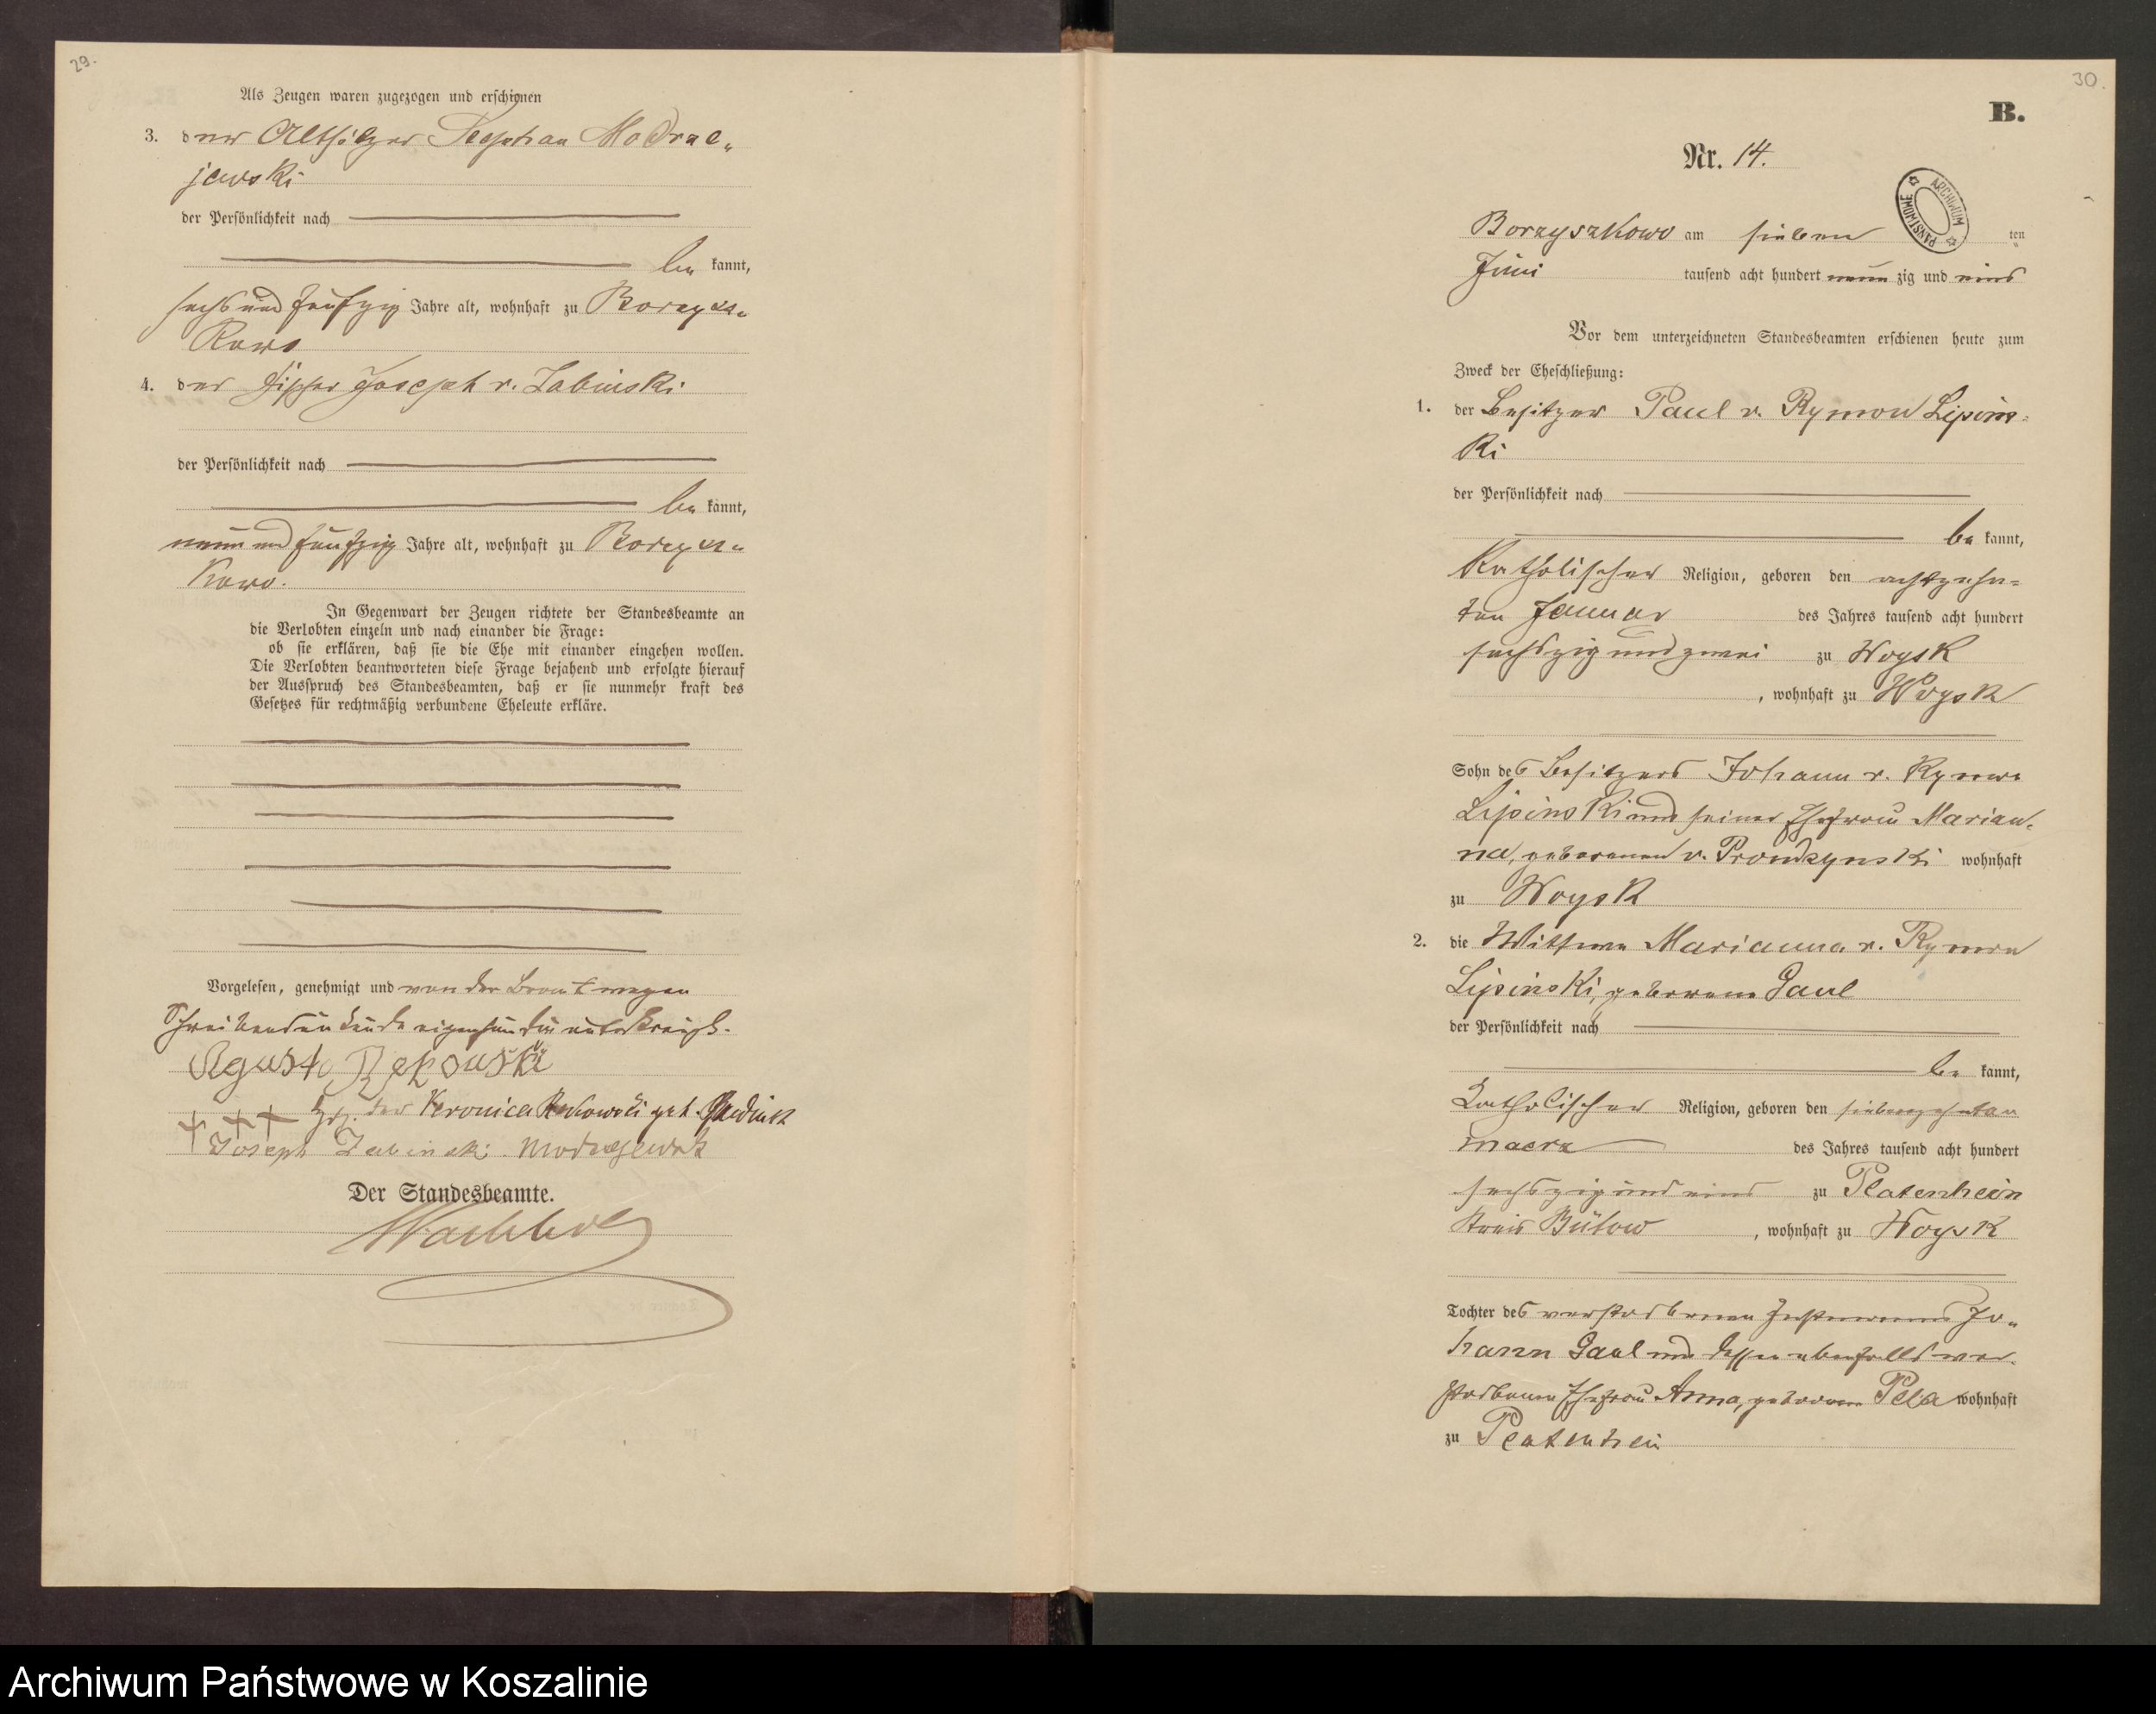 29.
Als Zeugen waren zugezogen und erschienen
3. der Altsitzer Stephan Modrze„
jewski
der Persönlichkeit nach
be kannt,
sechs und fünfzig Jahre alt, wohnhaft zu Borzysz„
kowo
4. der Fischer Joseph v. Zabinski
der Persönlichkeit nach
be kannt,
neun und fünfzig Jahre alt, wohnhaft zu Borzysz„
kowo.
In Gegenwart der Zeugen richtete der Standesbeamte an
die Verlobten einzeln und nach einander die Frage:
ob sie erklären, daß sie die Ehe mit einander eingehen wollen.
Die Verlobten beantworteten diese Frage bejahend und erfolgte hierauf
der Ausspruch des Standesbeamten, daß er sie nunmehr kraft des
Gesetzes für rechtmäßig verbundene Eheleute erkläre.
Vorgelesen, genehmigt und von der Braut wegen
Schreibensunkunde
Rekowski
+++ der Veronica Rekowski geb.
Joseph Zabinski
Der Standesbeamte.
30.
B.
Nr. 14.
ARCHIWUM PAŃSTWOWE
Borzyszkowo am sieben ten
Juni tausend acht hundert neun zig und eins
Vor dem unterzeichneten Standesbeamten erschienen heute zum
Zweck der Eheschließung:
1. der Besitzer Paul v. Rymon Lipins=
ki
der Persönlichkeit nach
be kannt,
Katholischer Religion, geboren den achtzehn=
ten Januar des Jahres tausend acht hundert
sechszig und zwei zu Woysk
, wohnhaft zu Woysk
Sohn des Besitzers Johann v. Rymon
Lipinski und seiner Ehefrau Marian=
na, geborenen v. Prondzynski wohnhaft
zu Woysk
2. die Wittwe Marianna v. Rymon
Lipinski, geborene Gaul
der Persönlichkeit nach
be kannt,
Katholischer Religion, geboren den siebenzehnten
Maerz des Jahres tausend acht hundert
sechszig und eins zu Platenhein
Kreis Bütow, wohnhaft zu Woysk
Tochter des verstorbenen Jo„
hann Gaul und dessen ebenfalls ver=
storbenen Ehefrau Anna, geborene wohnhaft
zu Platenhein
Archiwum Państwowe w Koszalinie